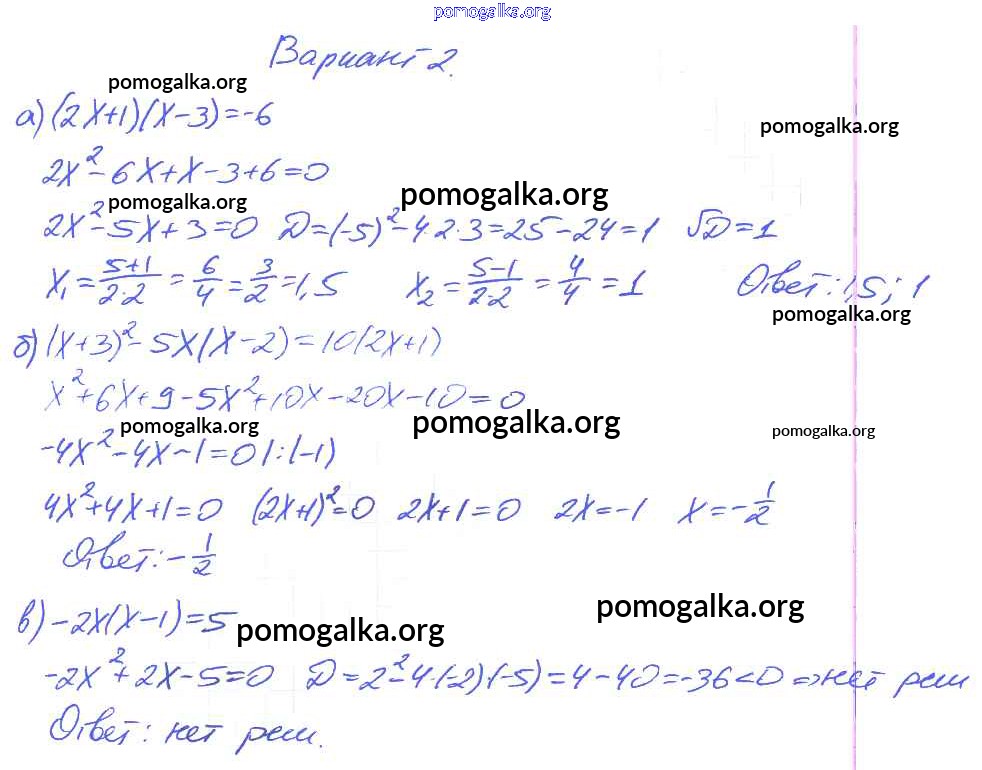 pomogalka.org
Вариант 2.
pomogalka.org
а) (2x+1)(x-3)=-6
pomogalka.org
2x²-6x+x-3+6=0
pomogalka.org
pomogalka.org
2x²-5x+3=0 D=(-5)²-4·2·3=25-24=1 √D=1
x₁=(5+1)/(2·2)=6/4=3/2=1,5 x₂=(5-1)/(2·2)=4/4=1 Ответ: 1,5; 1
pomogalka.org
б) (x+3)²-5x(x-2)=10(2x+1)
x²+6x+9-5x²+10x-20x-10=0
pomogalka.org
pomogalka.org
pomogalka.org
-4x²-4x-1=0 |:(-1)
4x²+4x+1=0 (2x+1)²=0 2x+1=0 2x=-1 x=-1/2
Ответ: -1/2
в) -2x(x-1)=5
pomogalka.org
pomogalka.org
-2x²+2x-5=0 D=2²-4·(-2)·(-5)=4-40=-36<0 => нет реш
Ответ: нет реш.